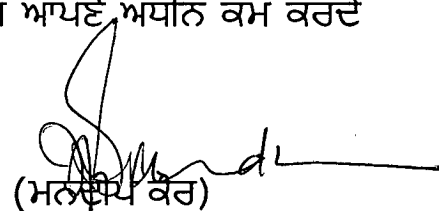 ਆਪਣੇ ਅਧੀਨ ਕੰਮ ਕਰਦੇ
(ਮਨਦੀਪ ਕੌਰ)